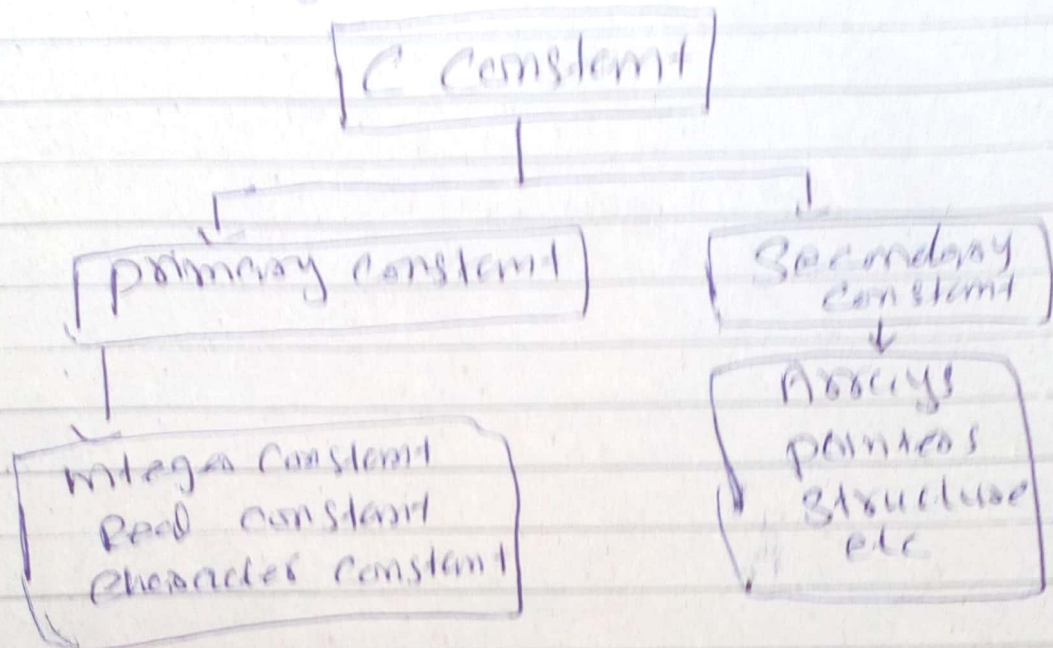 C Constant
Primary Constant
Secondary
constant
Integer Constant
Real constant
Character Constant
Arrays
pointers
structure
etc